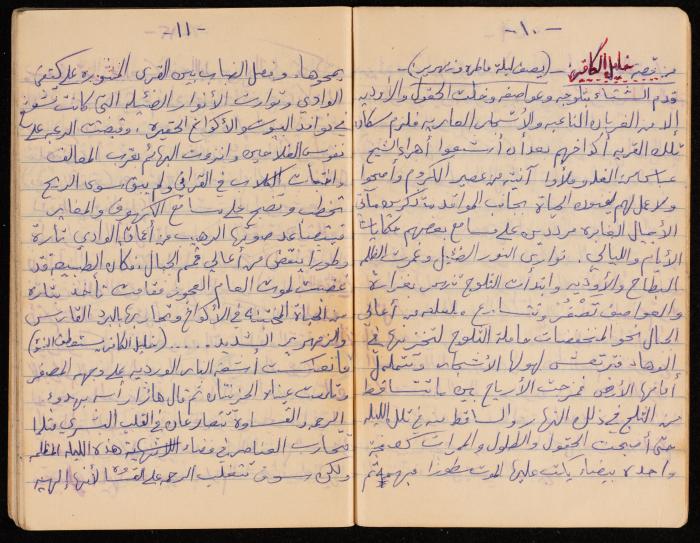 -١٠-
من قصة خليل الكافر (يصف ليلة عاطرة وزمهرير)
قدم الشتاء بثلوجه وعواصفه وخلت الحقول والأودية
الا من الغربان الناعبة والأشجار العارية فلزم سكان
تلك القرية أكواخهم بعد أن أشبعوا أهراء الشيخ
عباس من الغلة وملأوا آنيته من عصير الكروم وأصبحوا
ولا عمل لهم يفنون الحياة بجانب المواقد متذكرين مآتي
الأجيال الغابرة مرددين على مسامع بعضهم حكايات
الأيام والليالي. توارى النور الضئيل وغمرت الظلمة
البطاح والأودية وابتدأت الثلوج تنهمر بغزارة
والعواصف تصفر وتتسارع من أعالي
الجبال نحو المنخفضات حاملة الثلوج لتخزنها في
الوهاد فترتعش لهولها الأشجار وتتململ
أمامها الأرض فمزجت الأرياح بين ما تساقط
من الثلج في ذلك النهار والساقط منه في تلك الليلة
حتى أصبحت الحقول والطلول والممرات كصفحة
واحدة بيضاء يكتب عليها الموت سطورا مبهمة ثم
-١١-
يمحوها، وفصل الضباب بين القرى المنثورة على كتفي
الوادي وتوارت الأنوار الضئيلة التي كانت تشعشع
في نوافذ البيوت والأكواخ الحقيرة، وقبضت الرهبة على
نفوس الفلاحين وانزوت البهائم بقرب المعالف
واختبأت الكلاب في القراني ولم يبق سوى الريح
تخطب وتضج على مسامع الكهوف والمغاور
فيتصاعد صوتها الرهيب من أعماق الوادي تارة
وطورا ينقض من أعالي قمم الجبال فكأن الطبيعة قد
غضبت لموت العام العجوز فقامت تأخذ بثاره
من الحياة المختبئة في الأكواخ وتحاربها بالبرد القارس
والزمهرير الشديد..... (خليل الكافر يستعطف الشيخ)
فانعكست أشعة النار الوردية على وجهه المصفر
وتلألأت عيناه الحزينتان ثم قال هازا رأسه بهدوء
الرحمة والقساوة تتصارعان في القلب البشري مثلما
تتحارب العناصر في فضاء هذه الليلة المظلمة
ولكن سوف تتغلب الرحمة على القساوة لأنها إلهية